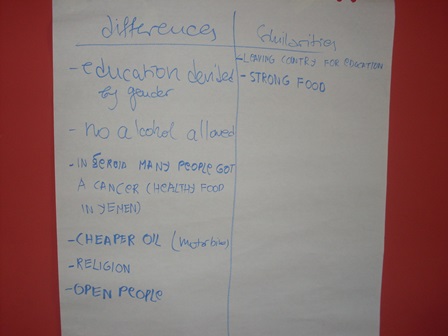 differences
- education devided
by gender
- no alcohol allowed
- IN SERBIA MANY PEOPLE GOT
A CANCER (HEALTHY FOOD
IN YEMEN)
- CHEAPER OIL (motorbikes)
- RELIGION
- OPEN PEOPLE
Similarities
- LEAVING CONTRY FOR EDUCATION
- STRONG FOOD